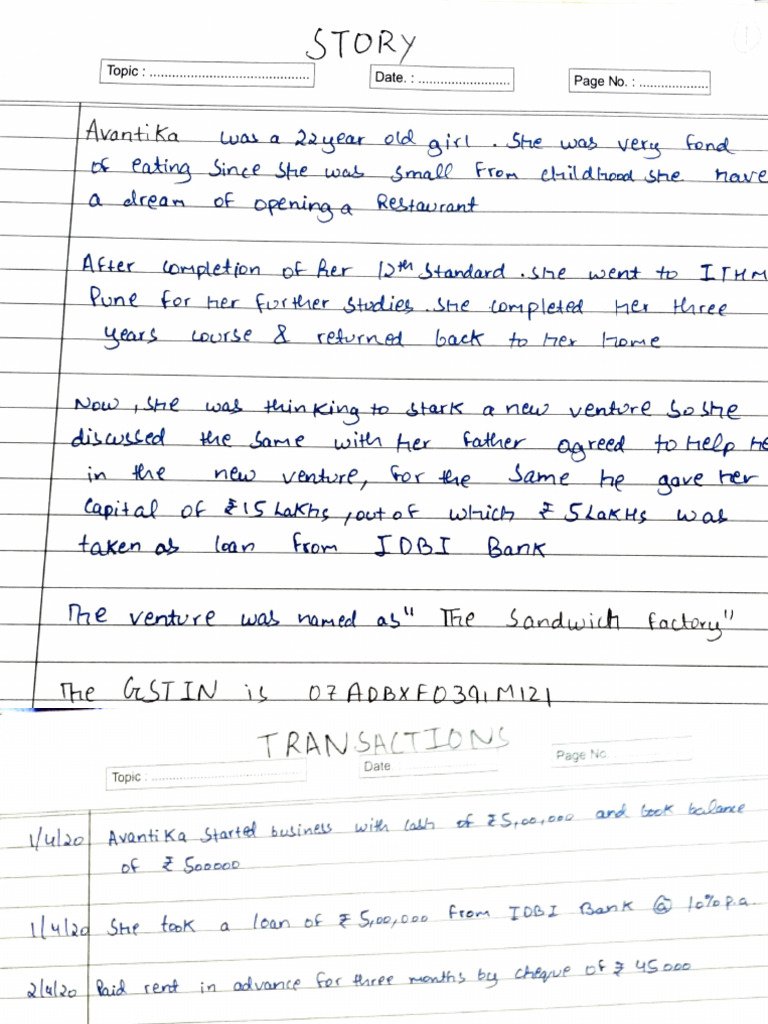 STORY
Topic : ............................................
Date. : .........................
Page No. : ...................
Avantika was a 22 year old girl. She was very fond
of eating since she was small from childhood she have
a dream of opening a Restaurant
After completion of her 12th standard. she went to ITHM
Pune for her further studies. she completed her three
years course & returned back to her home
Now, she was thinking to stark a new venture so she
discussed the same with her father agreed to help he
in the new venture, for the same he gave her
capital of ₹15 Lakhs, out of which ₹ 5 Lakhs was
taken as loan from IDBI Bank
The venture was named as "The Sandwich factory"
The GSTIN is 07ADBXF0391M121
TRANSACTIONS
Topic : ............................................
Date
Page No.
1/4/20 Avantika Started business with cash of ₹5,00,000 and book balance
of ₹ 500000
1/4/20 She took a loan of ₹ 5,00,000 from IDBI Bank @ 10% p.a.
2/4/20 Paid rent in advance for three months by cheque of ₹ 45000